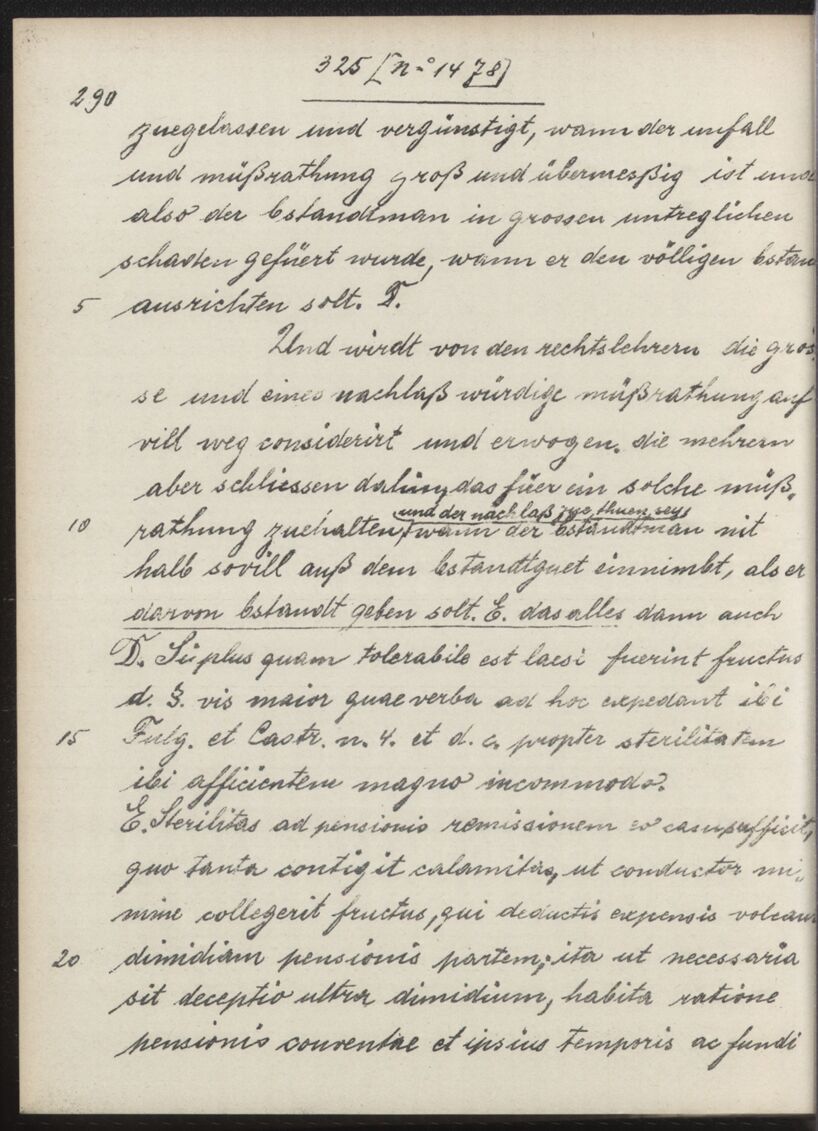 325 [n=o 1478]
290
zuegelassen und vergünstigt, wann der unfall
und müßrathung groß und übermeßig ist und
also der bstandtman in grossen untreglichen
schaden gefüert wurde, wann er den völligen bstan
5 ausrichten solt. D.
Und wirdt von den rechtslehrern die gros
se und eines nachlaß würdige müßrathung auf
vill weg considerirt und erwogen. die mehrern
aber schliessen dahin, das füer ein solche müß„
und der nachlaß zue thuen sey,
10 rathung zuehalten, wann der bstandtman nit
halb sovill auß dem bstandtguet einnimbt, als er
darvon bstandt geben solt. E. das alles dann auch
D. Si plus quam tolerabile est laesi fuerint fructus
d. §. vis maior quae verba ad hoc expedant ibi
15 Fulg. et Castr. n. 4. et d. c. propter sterilitatem
ibi afficientem magno incommodo.
E. Sterilitas ad pensionis remissionem eo casu sufficit,
quo tanta contigit calamitas, ut conductor mi„
nime collegerit fructus, qui deductis expensis volean
20 dimidiam pensionis partem; ita ut necessaria
sit deceptio ultra dimidium, habita ratione
pensionis conventae et ipsius temporis ac fundi